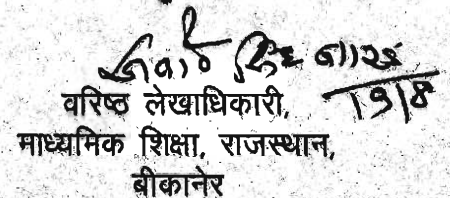 सिंह
1918
वरिष्ठ लेखाधिकारी,
माध्यमिक शिक्षा, राजस्थान,
बीकानेर